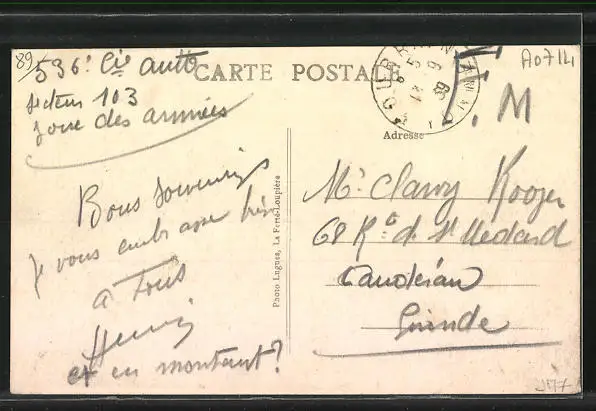 89
536e Cie auto
CARTE POSTALE
F.M.
A0714
secteur 103
zone des armées
Adresse
Bons souvenirs
je vous embrasse bien
à Tous
Henri
et en montant?
Photo Lugues, La Ferté-Loupière
Mr Clawy Rooger
68 R. d. St Médard
Caudéran
Gironde